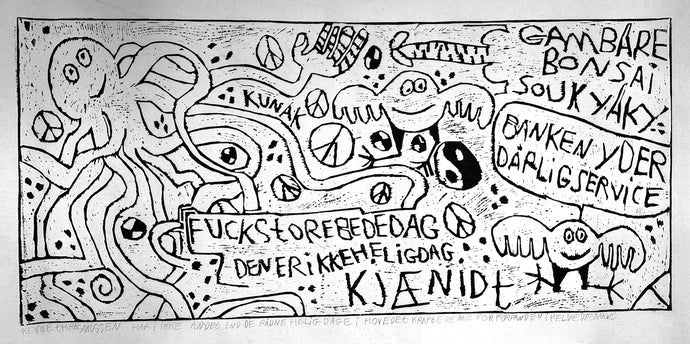 GAMBARE
BONSAI
SOUKYAKY
KUNAK
BANKEN YDER
DÅRLIG SERVICE
FUCKSTOREBEDEDAG
DEN ER IKKE HELIGDAG
KJÆNIDT
KENNETH RASMUSSEN HAR I IKKE ANDET END DE RÅDNE HELIGDAGE I HOVEDET